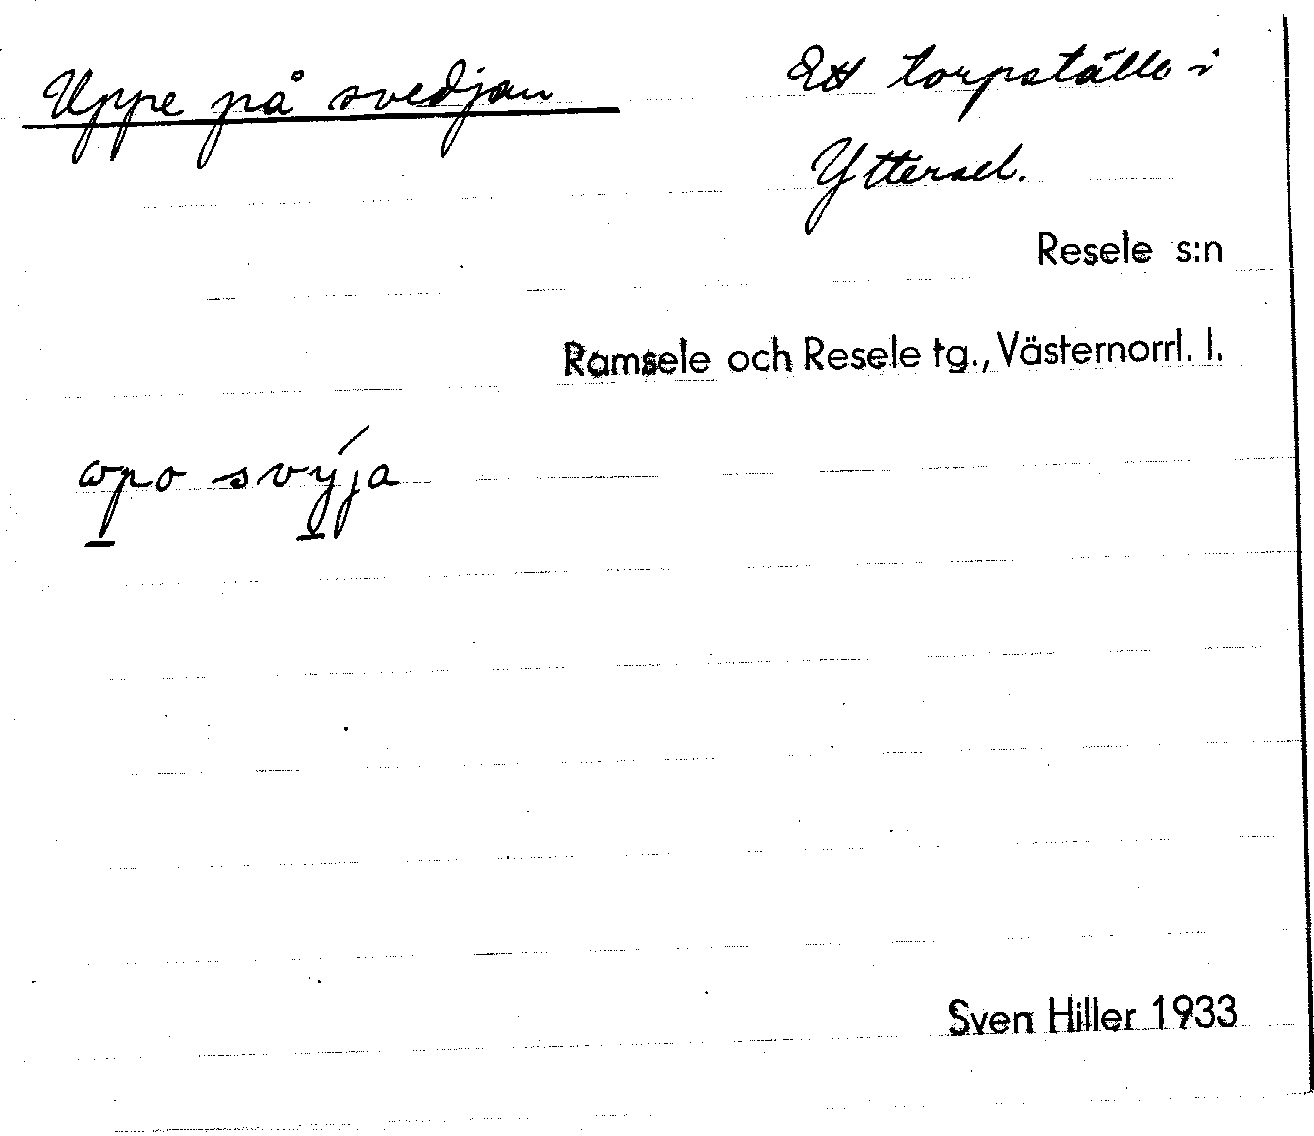 Uppe på svedjan
Ett torpställe i
Yttersel.
Resele s:n
Ramsele och Resele tg., Västernorrl. l.
ωpo svýja
Sven Hiller 1933